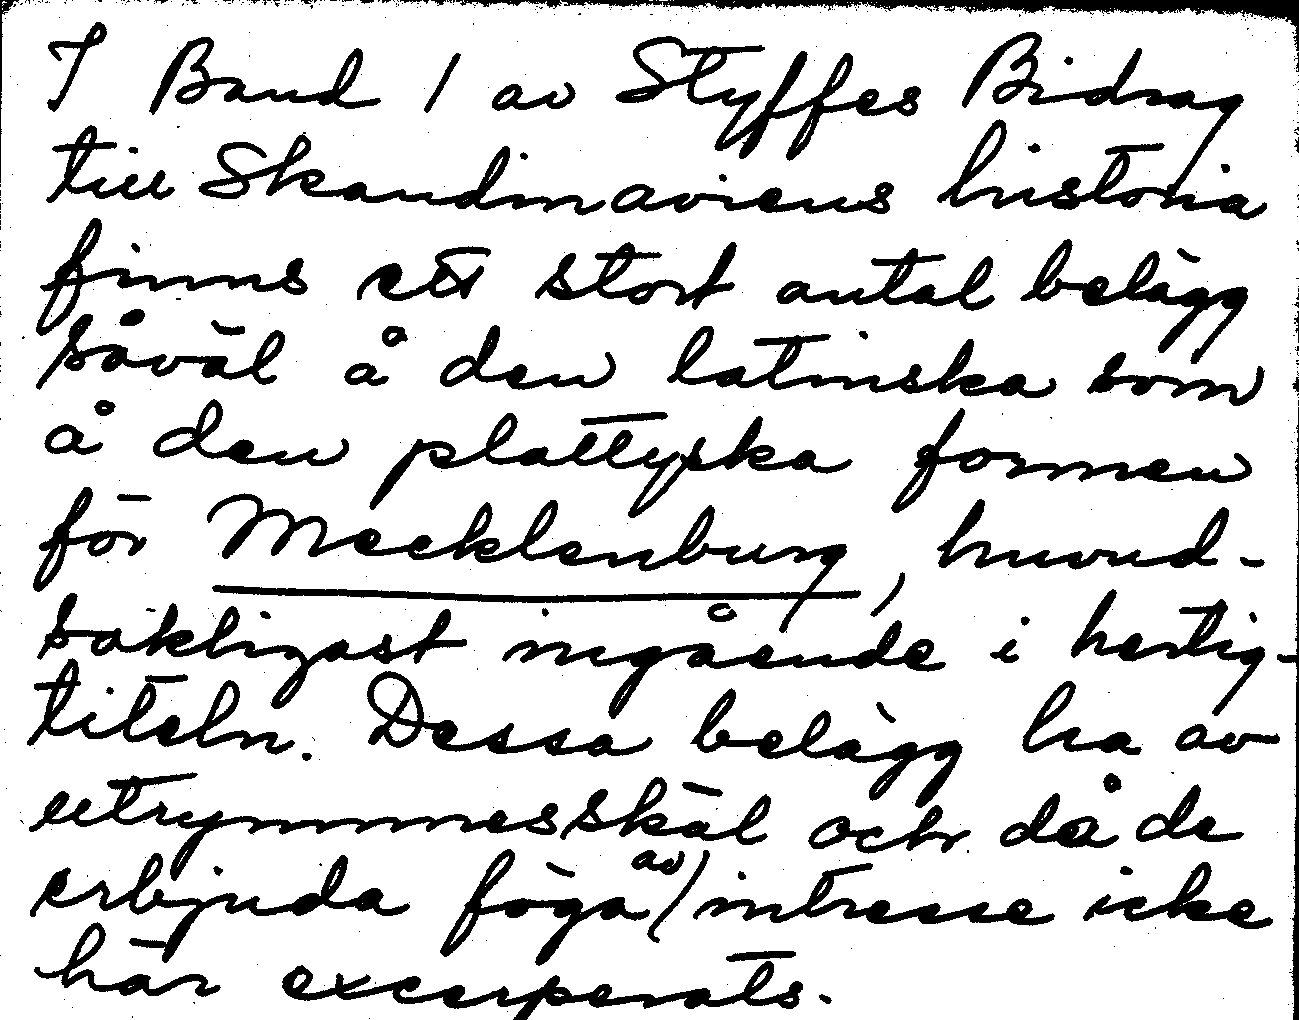 I Band 1 av Styffes Bidrag
till Skandinaviens historia
finns ett stort antal belägg
såväl å den latinska som
å den plattyska formen
för Mecklenburg, huvud-
sakligast ingående i hertig-
titeln. Dessa belägg ha av
utrymmesskäl och då de
erbjuda föga av intresse icke
här excerperats.